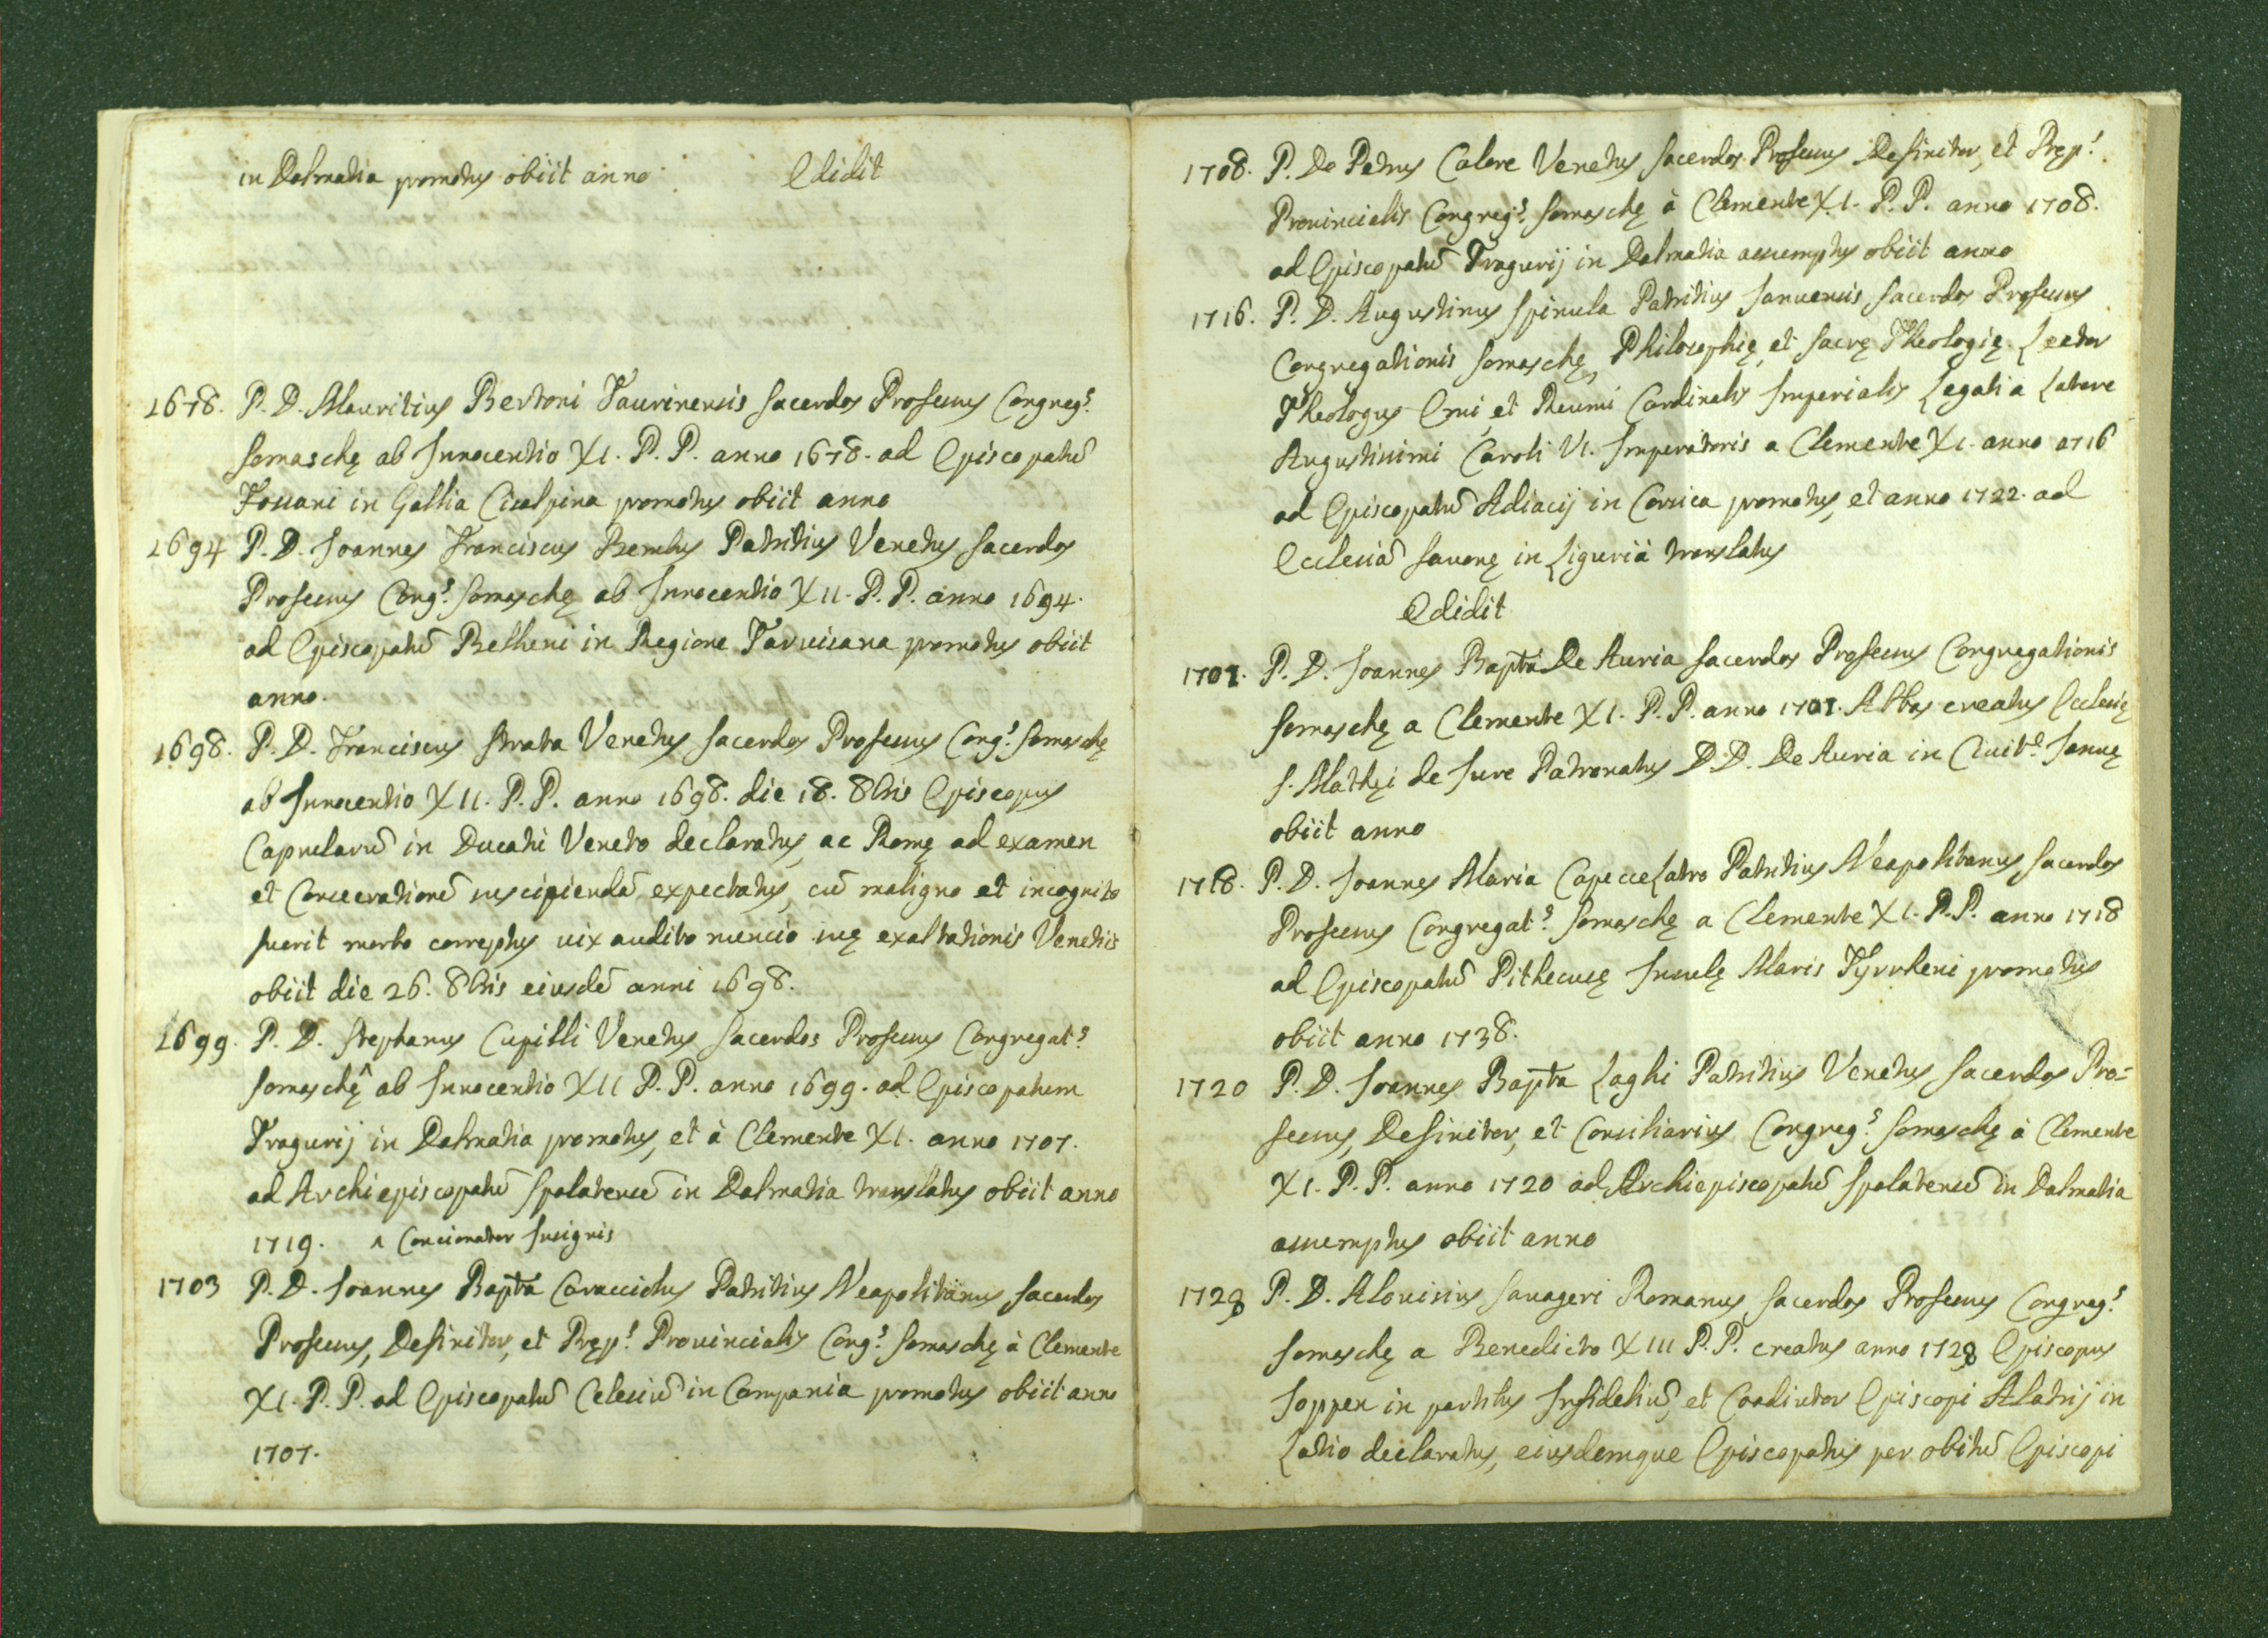 in Dalmatia promotus obiit anno Edidit
1678. P. D. Mauritius Bertoni Taurinensis Sacerdos Professus Congreg.s
Somaschę ab Innocentio XI. P. P. anno 1678. ad Episcopatū
Fossani in Gallia Cisalpina promotus obiit anno
1694 P. D. Joannes Franciscus Bembus Patritius Venetus Sacerdos
Professus Cong.s Somaschę ab Innocentio XII. P. P. anno 1694.
ad Episcopatū Belluni in Regione Tarvisana promotus obiit
anno.
1698. P. D. Franciscus Strata Venetus Sacerdos Professus Cong.s Somaschę
ab Innocentio XII. P. P. anno 1698. die 18. 8bris Episcopus
Caprularū in Ducatu Veneto declaratus, ac Romę ad examen
et Consecrationē suscipiendā expectatus, cū maligno et incognito
fuerit morbo correptus vix audito nuncio suę exaltationis Venetiis
obiit die 26. 8bris eiusdē anni 1698.
1699. P. D. Stephanus Cupilli Venetus Sacerdos Professus Congregat.s
Somaschę^ ab Innocentio XII P. P. anno 1699. ad Episcopatum
Tragurij in Dalmatia promotus, et à Clemente XI. anno 1707.
ad Archiepiscopatū Spalatensē in Dalmatia translatus obiit anno
1719. ^ Concionator Insignis
1703 P. D. Joannes Bapta Caracciolus Patritius Neapolitanus Sacerdos
Professus, Definitor, et Pręp.s Provincialis Cong.s Somaschę à Clemente
XI. P. P. ad Episcopatū Celesiū in Campania promotus obiit anno
1707.
1708. P. Do Petrus Calore Venetus Sacerdos Professus Definitor, et Pręp.s
Provincialis Congreg.s Somaschę à Clemente XI. P. P. anno 1708.
ad Episcopatū Tragurij in Dalmatia assumptus obiit anno
1716. P. D. Augustinus Spinula Patritius Januensis Sacerdos Professus
Congregationis Somaschę, Philosophię, et Sacrę Theologię Lector
Theologus Emi, et Reumi Cardinalis Imperialis Legati a Latere
Augustissimi Caroli VI. Imperatoris a Clemente XI. anno 1716
ad Episcopatū Adiacij in Corsica promotus, et anno 1722. ad
Ecclesiā Savonę in Liguria translatus
Edidit
1701. P. D. Joannes Bapta De Auria Sacerdos Professus Congregationis
Somaschę a Clemente XI. P. P. anno 1701. Abbas creatus Ecclesię
S. Mathęi de Jure Patronatus D. D. De Auria in Civit.e Januę
obiit anno
1718. P. D. Joannes Maria Capecelatro Patritius Neapolitanus Sacerdos
Professus Congregat.s Somaschę a Clemente XI. P. P. anno 1718
ad Episcopatū Pithecusę Insulę Maris Tyrrheni promotus
obiit anno 1738.
1720 P. D. Joannes Bapta Laghi Patritius Venetus Sacerdos Pro=
fessus, Definitor, et Consiliarius Congreg.s Somaschę à Clemente
XI. P. P. anno 1720 ad Archiepiscopatū Spalatensē in Dalmatia
assumptus obiit anno
1728 P. D. Alouisius Savageri Romanus Sacerdos Professus Congreg.s
Somaschę a Benedicto XIII P. P. creatus anno 1728 Episcopus
Joppen in partibus Infideliū, et Coadiutor Episcopi Alatrij in
Latio declaratus, eiusdemque Episcopatus per obitū Episcopi